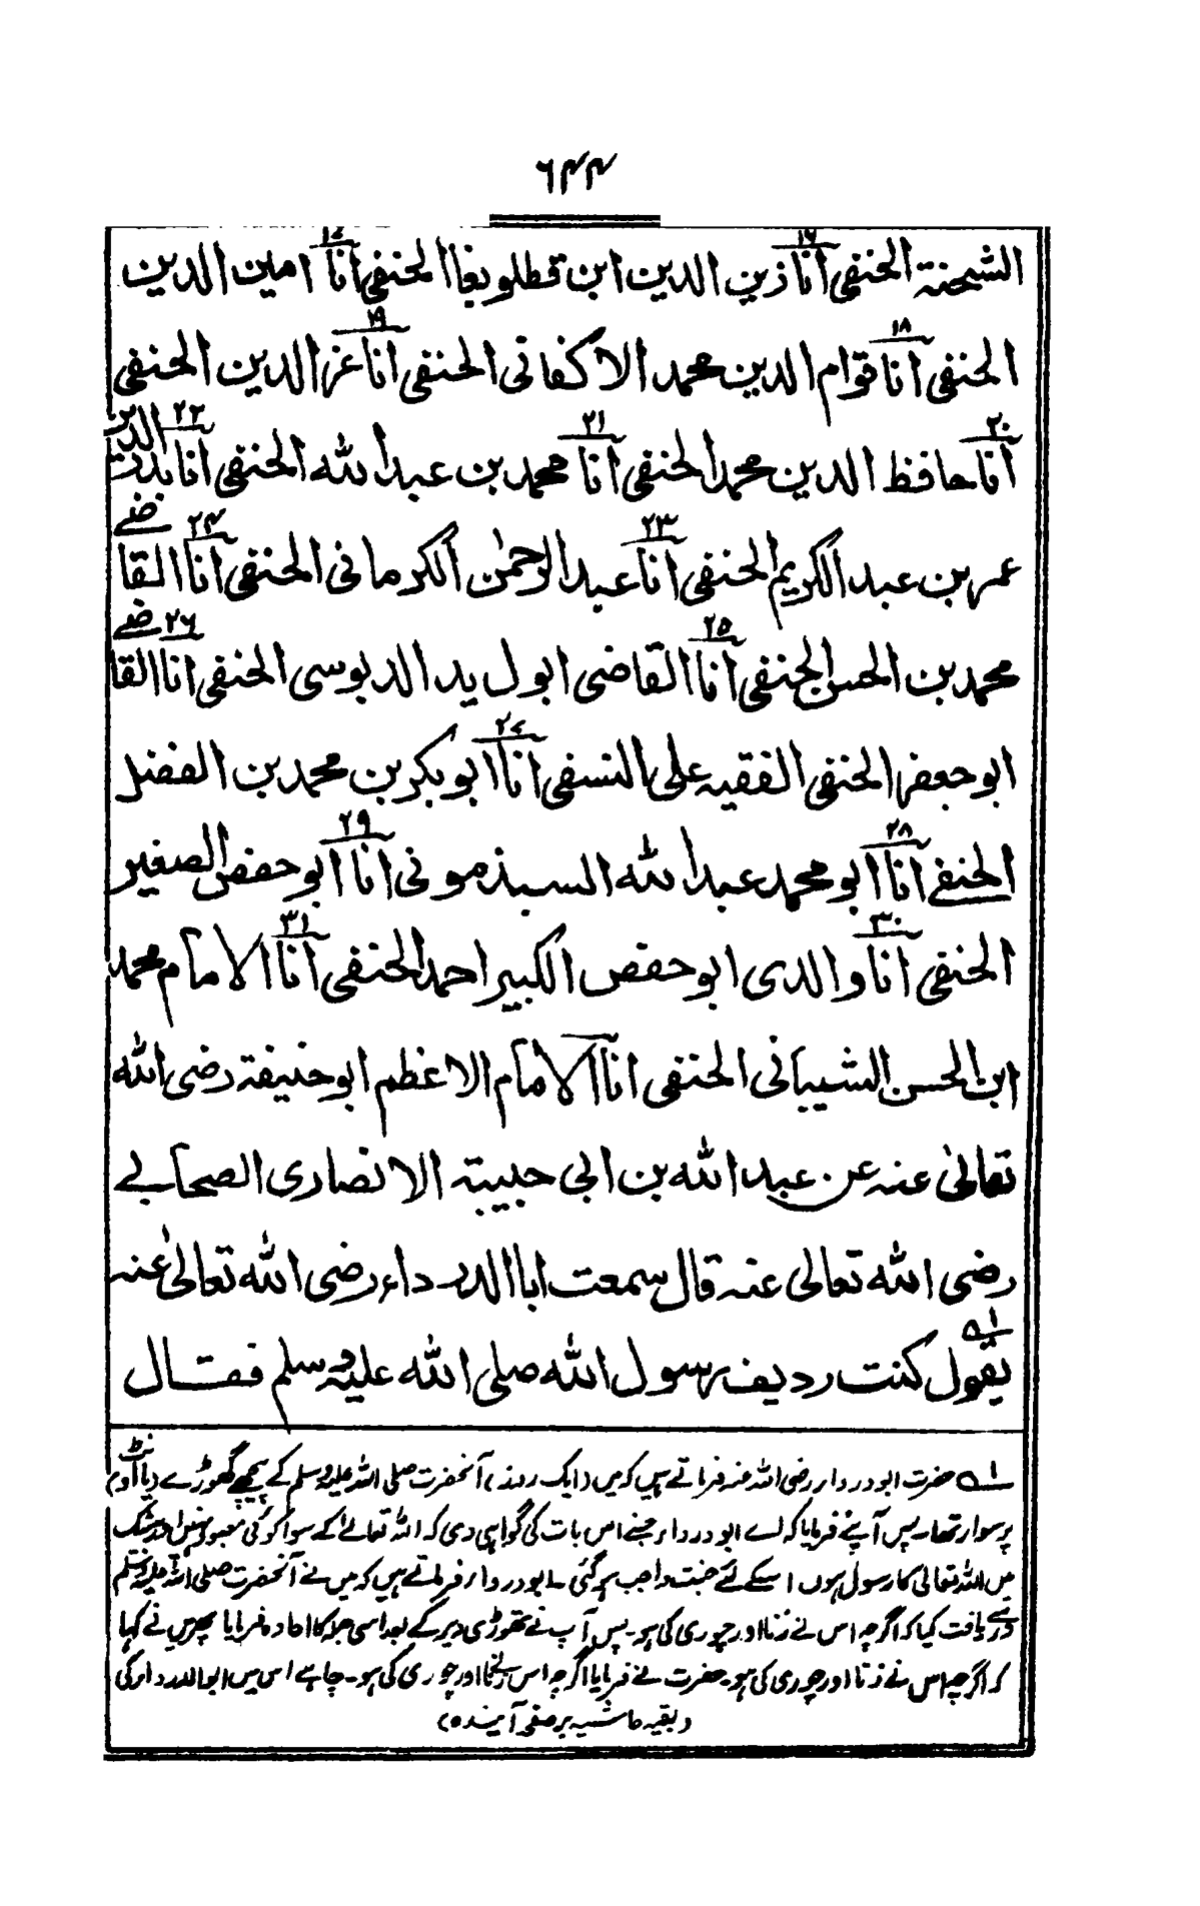 ۶۴۴
الشحنة الحنفی انا ۱۶ زین الدین ابن قطلوبغا الحنفی انا ۱۷ امین الدین
الحنفی انا ۱۸ قوام الدین محمد الاکفانی الحنفی انا ۱۹ عز الدین الحنفی
انا ۲۰ حافظ الدین محمد الحنفی انا ۲۱ محمد بن عبد الله الحنفی انا ۲۲ الدین
عمر بن عبد الکریم الحنفی انا ۲۳ عبد الرحمٰن الکرمانی الحنفی انا ۲۴ القاضے
محمد بن الحسن الحنفی انا ۲۵ القاضی ابول ید الدبوسی الحنفی انا ۲۶ القاضے
ابو جعفر الحنفی الفقیه علی النسفی انا ۲۷ ابو بکر بن محمد بن الفضل
الحنفے انا ۲۸ ابو محمد عبد الله السبذمونی انا ۲۹ ابو حفض الصغیر
الحنفی انا ۳۰ والدی ابو حفص الکبیر احمد الحنفی انا ۳۱ الامام محمد
ابن الحسن الشیبانی الحنفی انا الامام الاعظم ابو حنیفة رضی الله
تعالیٰ عنه عن عبد الله بن ابی حبیبة الانصاری الصحابے
رضی الله تعالی عنه قال سمعت ابا الدرداء رضی الله تعالیٰ عنه
یقول ۱؎ کنت ردیف رسول الله صلی الله علیه وسلم فقال
۱؎ حضرت ابو دردار رضی اللہ عنہ فرماتے ہیں کہ میں (ایک روز) آنحضرت صلی اللہ علیہ وسلم کے پیچھے گھوڑے (یا اونٹ)
پر سوار تھا۔ پس آپ نے فرمایا کہ اے ابو درداء جسنے اس بات کی گواہی دی کہ اللہ تعالےٰ کے سوا کوئی معبود نہیں اور بیشک
میں اللہ تعالیٰ کا رسول ہوں اسکے لئے جنت واجب ہو گئی۔ ابو دردار فرماتے ہیں کہ میں نے آنحضرت صلی اللہ علیہ وسلم
سے دریافت کیا کہ اگرچہ اس نے زنا اور چوری کی ہو۔ پس آپ نے تھوڑی دیر کے بعد اسی جملہ کا اعادہ فرمایا پھر میں نے کہا
کہ اگرچہ اس نے زنا اور چوری کی ہو۔ حضرت نے فرمایا اگرچہ اس نے زنا اور چوری کی ہو۔ چاہے اس میں ابو الدردار کی
(بقیہ حاشیہ بر صفحہ آیندہ)